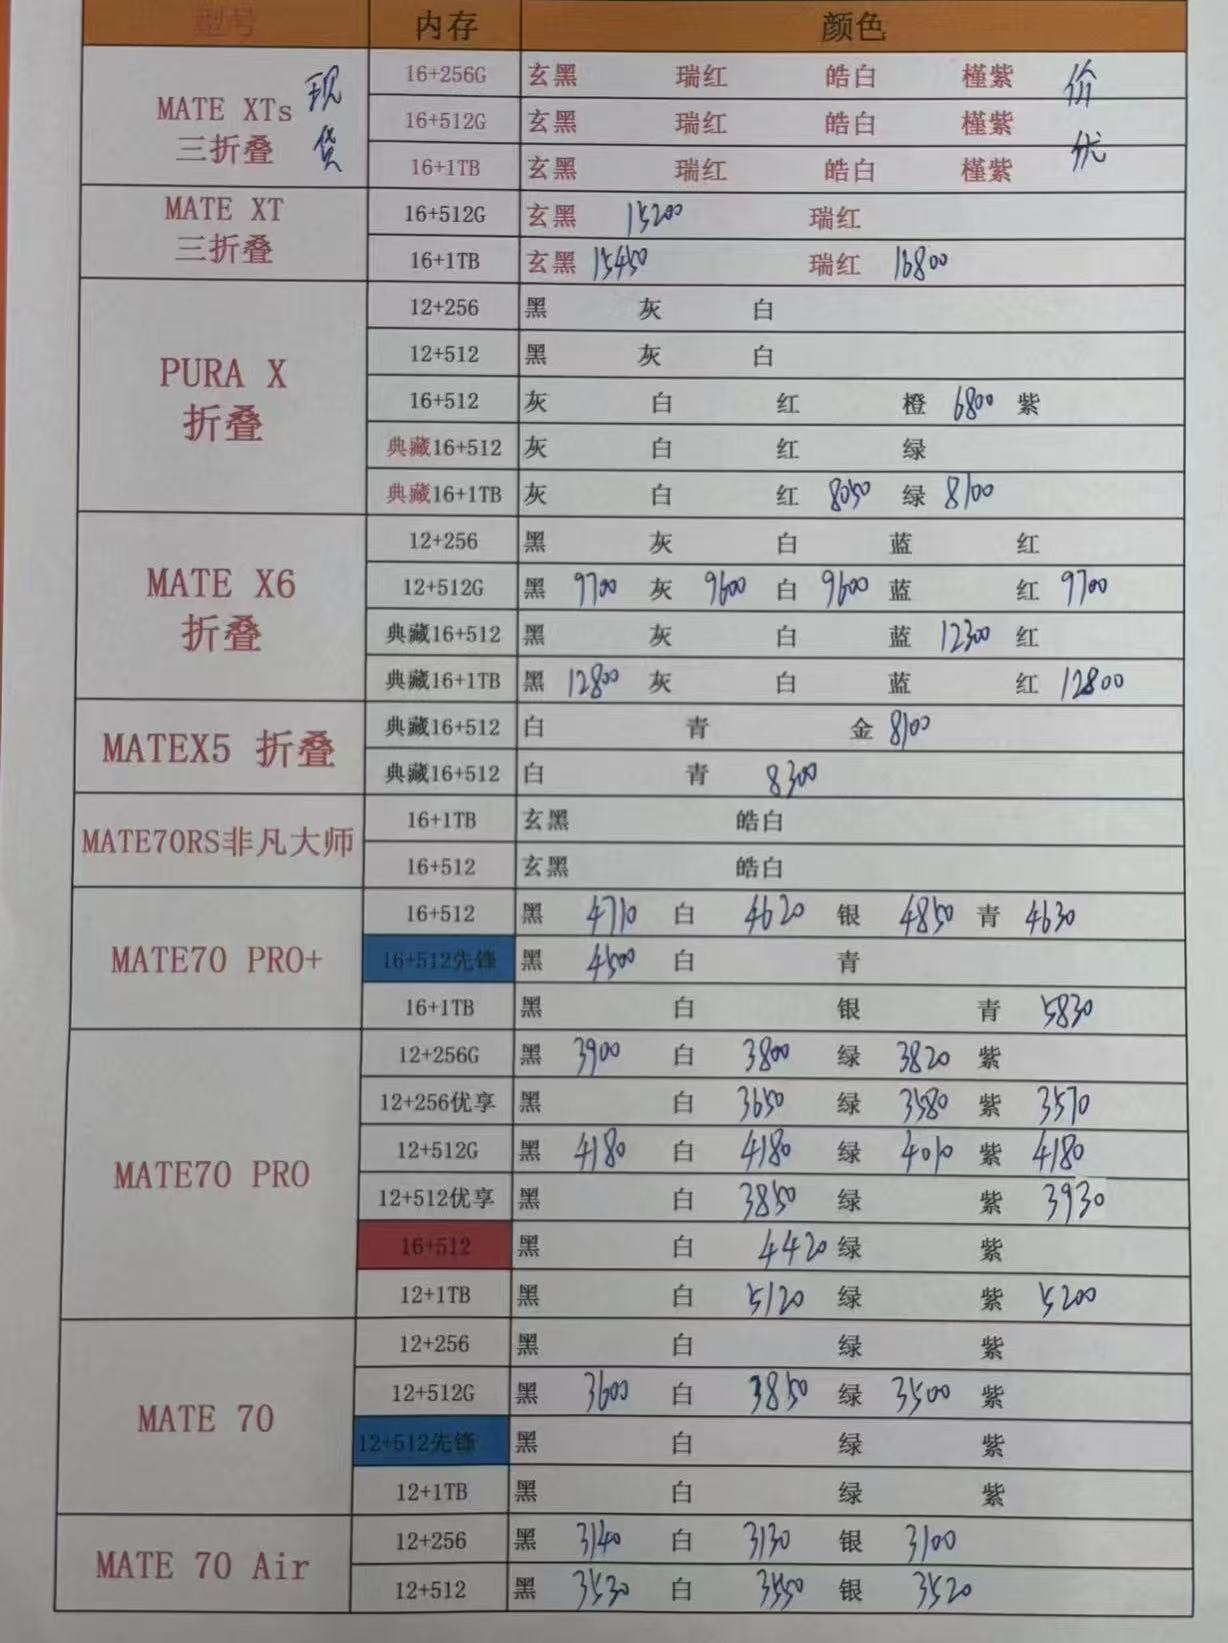 型号 内存 颜色
MATE XTs 三折叠 现货 价优
16+256G 玄黑 瑞红 皓白 槿紫
16+512G 玄黑 瑞红 皓白 槿紫
16+1TB 玄黑 瑞红 皓白 槿紫
MATE XT 三折叠
16+512G 玄黑 15200 瑞红
16+1TB 玄黑 15450 瑞红 16800
PURA X 折叠
12+256 黑 灰 白
12+512 黑 灰 白
16+512 灰 白 红 橙 6800 紫
典藏16+512 灰 白 红 绿
典藏16+1TB 灰 白 红 8050 绿 8100
MATE X6 折叠
12+256 黑 灰 白 蓝 红
12+512G 黑 9700 灰 9600 白 9600 蓝 红 9700
典藏16+512 黑 灰 白 蓝 12300 红
典藏16+1TB 黑 12800 灰 白 蓝 红 12800
MATEX5 折叠
典藏16+512 白 青 金 8100
典藏16+512 白 青 8300
MATE70RS非凡大师
16+1TB 玄黑 皓白
16+512 玄黑 皓白
MATE70 PRO+
16+512 黑 4710 白 4620 银 4850 青 4630
16+512先锋 黑 4500 白 青
16+1TB 黑 白 银 青 5830
MATE70 PRO
12+256G 黑 3900 白 3800 绿 3820 紫
12+256优享 黑 白 3650 绿 3580 紫 3570
12+512G 黑 4180 白 4180 绿 4010 紫 4180
12+512优享 黑 白 3850 绿 紫 3930
16+512 黑 白 4420 绿 紫
12+1TB 黑 白 5120 绿 紫 5200
MATE 70
12+256 黑 白 绿 紫
12+512G 黑 3600 白 3850 绿 3500 紫
12+512先锋 黑 白 绿 紫
12+1TB 黑 白 绿 紫
MATE 70 Air
12+256 黑 3140 白 3130 银 3100
12+512 黑 3530 白 3550 银 3520